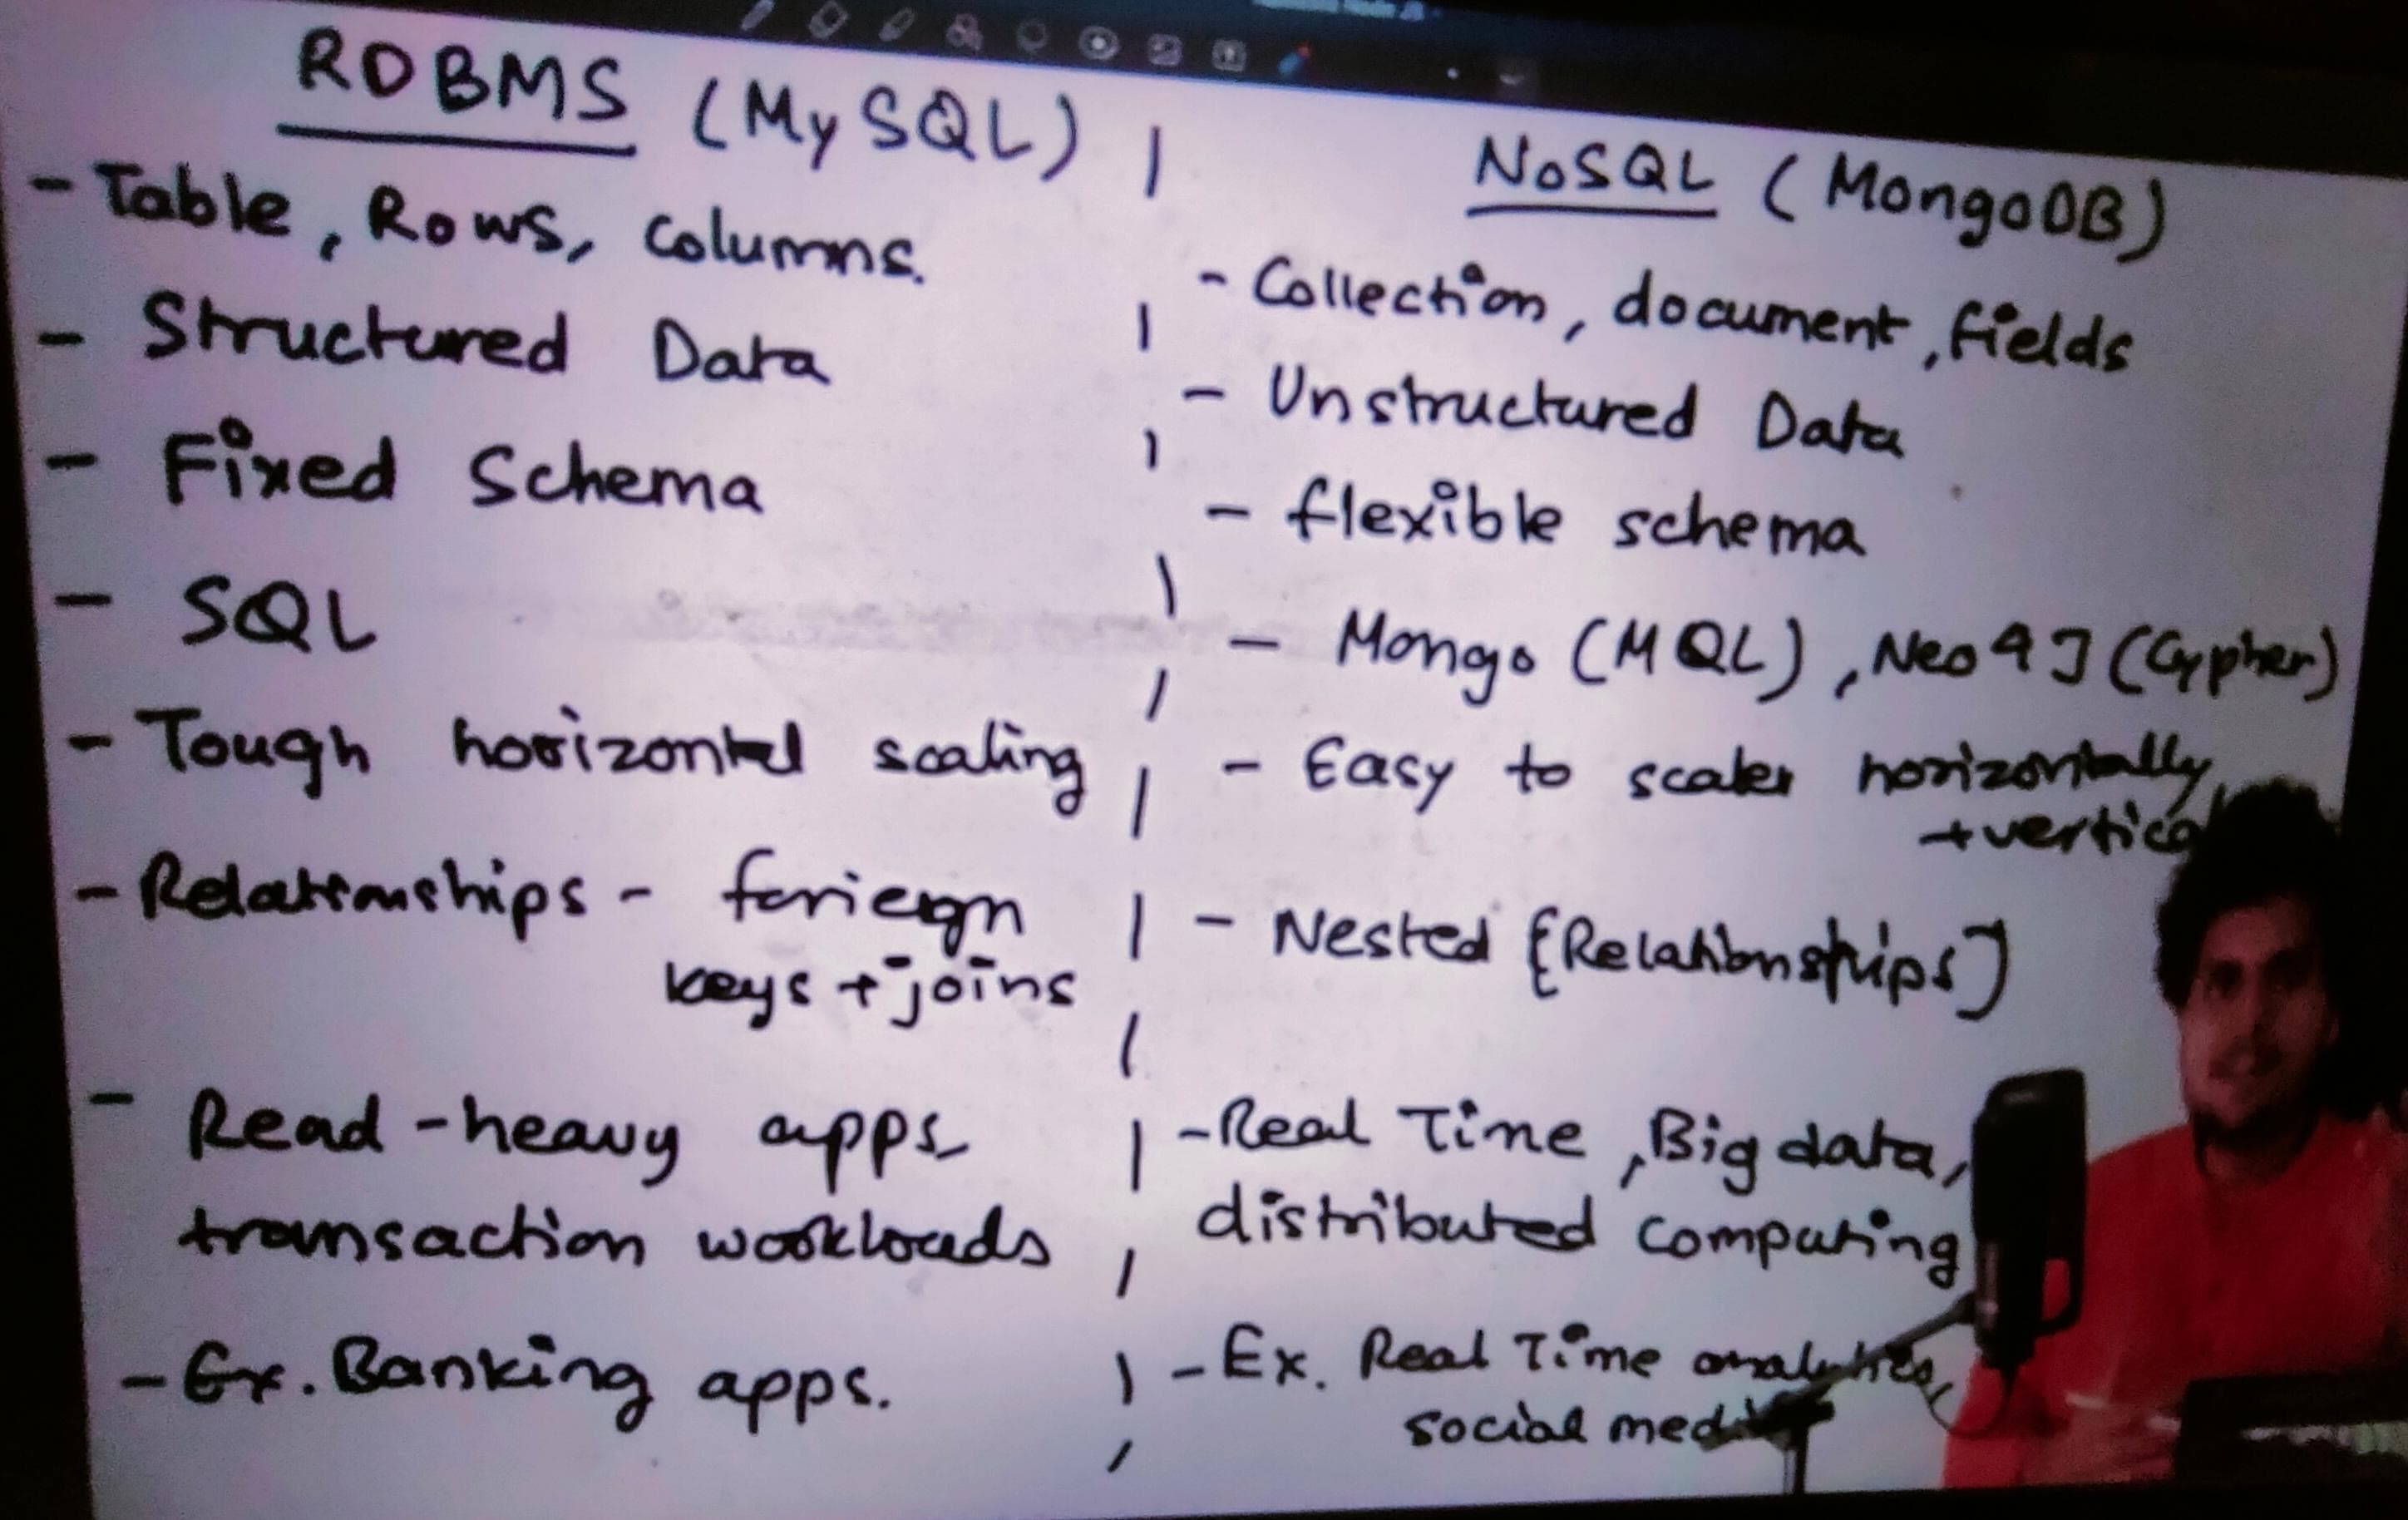 RDBMS (MySQL)
- Table, Rows, Columns.
- Structured Data
- Fixed Schema
- SQL
- Tough horizontal scaling
- Relationships - foriegn
keys + joins
- Read-heavy apps
transaction workloads
- Ex. Banking apps.
NoSQL (MongoDB)
- Collection, document, fields
- Unstructured Data
- flexible schema
- Mongo (MQL), Neo4J (Cypher)
- Easy to scale horizontally
+ vertica
- Nested {Relationships}
- Real Time, Big data,
distributed computing
- Ex. Real Time analytics,
social media